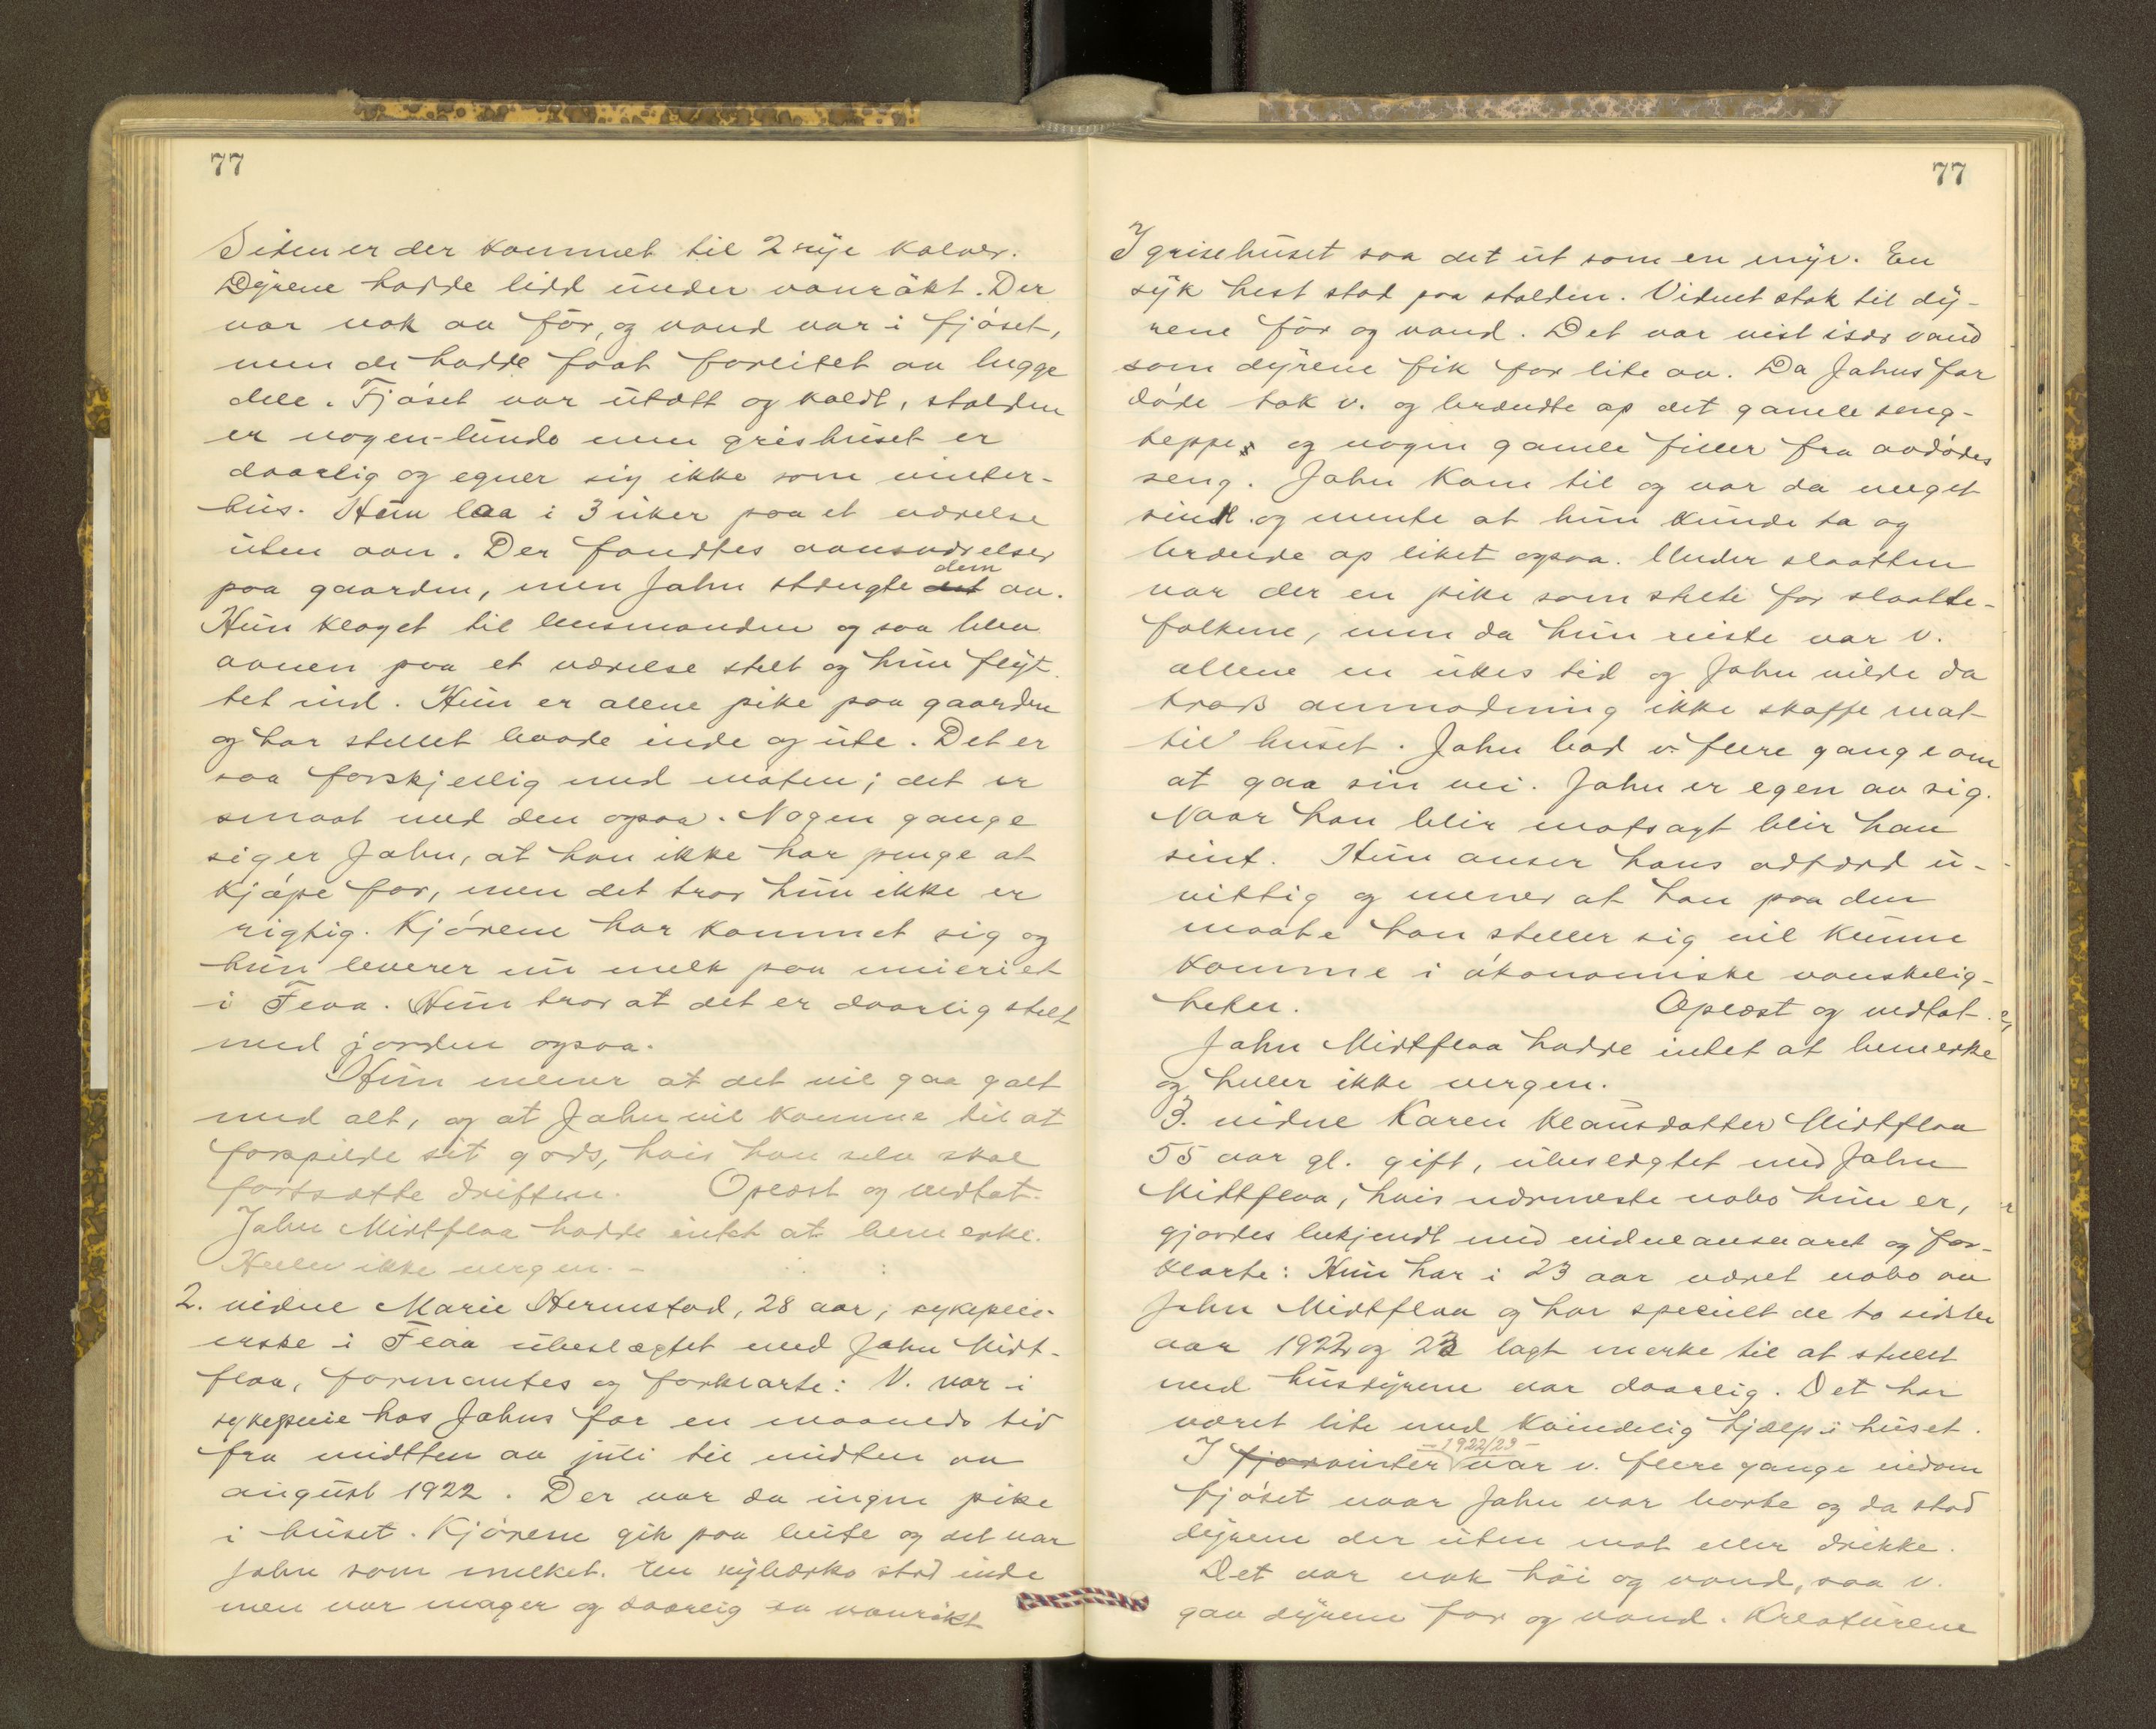 77
Siden er der kommet til 2 nye kalver.
Dyrene hadde lidd under vanrökt. Der
var nok av fór, og vand var i fjöset,
men de hadde faat forlitet av begge
dele. Fjöset var utætt og koldt, stalden
er nogen-lunde men grishuset er
daarlig og egner sig ikke som vinter-
hus. Hun laa i 3 uker paa et værelse
uten ovn. Der fandtes ovnsværelser
paa gaarden, men John stengte det dem av.
Hun klaget til lensmanden og saa blev
ovnen paa et værelse stelt og hun flyt-
tet ind. Hun er alene pike paa gaarden
og har stellet baade inde og ute. Det er
saa forskjellig med maten; det er
smaat med den ogsaa. Nogen gange
siger John, at han ikke har penge at
kjöpe for, men det tror hun ikke er
rigtig. Kjörene har kommet sig og
hun leverer nu melk paa meieriet
i Flaa. Hun tror at det er daarlig stelt
med jorden ogsaa.
Hun mener at det vil gaa galt
med alt, og at John vil komme til at
forspilde sit gods, hvis han selv skal
fortsætte driften. Oplæst og vedtat.
John Midtflaa hadde intet at bemerke.
Heller ikke vergen. -
2. vidne Marie Hermstad, 28 aar, sykeplei-
erske i Flaa ubeslægtet med John Midt-
flaa, formantes og forklarte: V. var i
sykepleie hos Johns far en maaneds tid
fra midtten av juli til midten av
august 1922. Der var da ingen pike
i huset. Kjörene gik paa beite og det var
John som melket. En nybærko stod inde
men var mager og daarlig av vanrökt
77
I grisehuset saa det ut som en myr. En
syk hest stod paa stalden. Vidnet stak til dy-
rene fór og vand. Det var vist især vand
som dyrene fik for lite av. Da Johns far
döde tok v. og brændte op det gamle seng-
teppe og nogen gamle filler fra avdödes
seng. John kom til og var da meget
sint og mente at hun kunde ta og
brænde op liket ogsaa. Under slaatten
var der en pike som stelte for slaatte-
folkene, men da hun reiste var v.
allene en ukes tid og John vilde da
tross anmodning ikke skaffe mat
til huset. John bad v. flere gange om
at gaa sin vei. John er egen av sig.
Naar han blir motsagt blir han
sint. Hun anser hans adfærd u-
vittig og mener at han paa den
maate han steller sig vil kunne
komme i ökonomiske vanskelig-
heter. Oplæst og vedtat.
John Midtflaa hadde intet at bemerke
og heller ikke vergen.
3. vidne Karen Klausdatter Midtflaa
55 aar gl. gift, ubeslægtet med John
Midtflaa, hvis nærmeste nabo hun er,
gjordes bekjendt med vidneansvaret og for-
klarte: Hun har i 23 aar været nabo av
John Midtflaa og har specielt de to sidste
aar 1922 og 23 lagt merke til at stellet
med husdyrene var daarlig. Det har
været lite med kvindelig hjælp i huset.
I fjor vinter - 1922/23 - var v. flere gange indom
fjöset naar John var borte og da stod
dyrene der uten mat eller drikke.
Det var nok höi og vand, saa v.
gav dyrene for og vand. Kreaturene